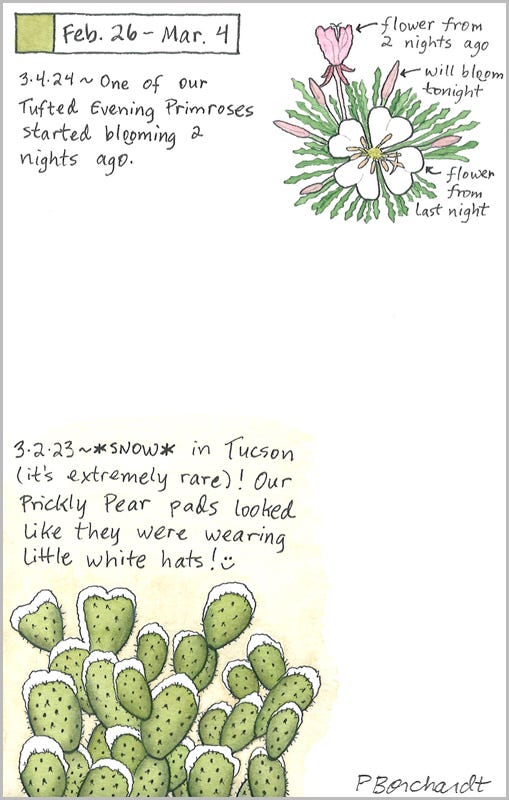 Feb. 26 – Mar. 4
3.4.24 ~ One of our
Tufted Evening Primroses
started blooming 2
nights ago.
flower from
2 nights ago
will bloom
tonight
flower
from
last night
3.2.23 ~ *SNOW* in Tucson
(it's extremely rare)! Our
Prickly Pear pads looked
like they were wearing
little white hats! :)
PBorchardt